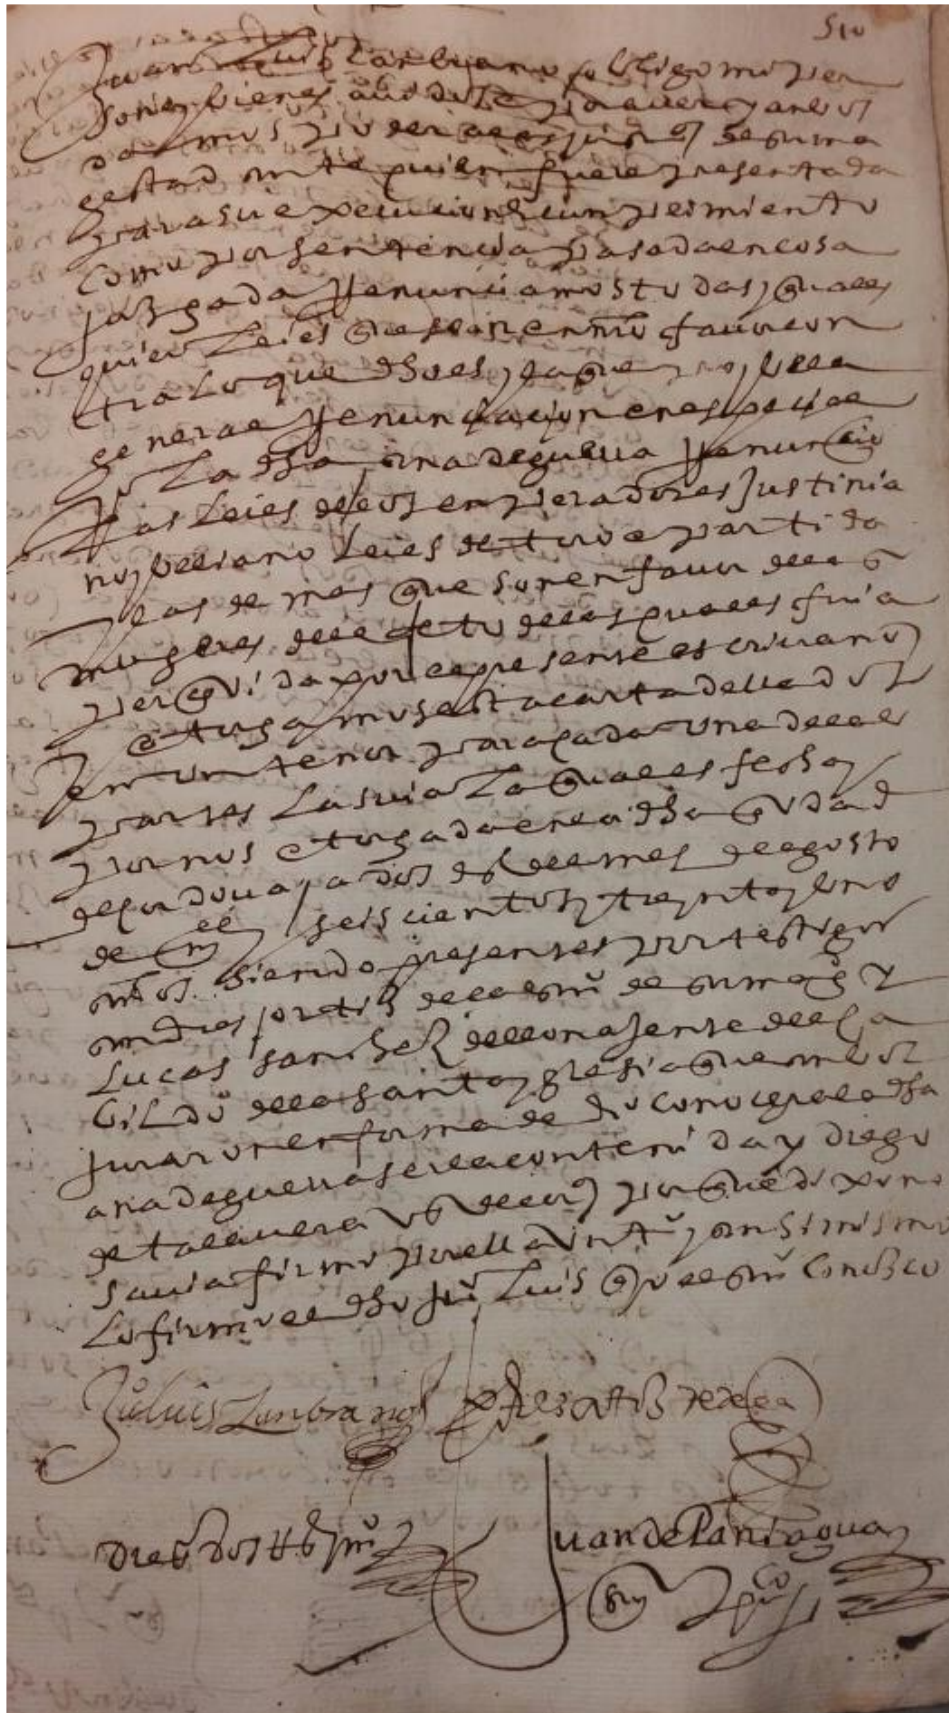 510
Juan Luis Zanbrano obligo mi per
sona y bienes auidos e por auer y anbos
damos poder a las justs de su ma
gestad ante quien fuere presentada
para su execucion e cunplimiento
como por sentencia pasada en cosa
jusgada rrenunciamos todas y quales
quier leies que sean en nro fauor con
tra lo que dho es y la que proybe la
general rrenunciacion en especial
yo la dha ana de gueua rrenuncio
las leies de los enperadores Justinia
no y beliano leies de toro e partida
y las demas que son en fauor de las
mugeres del efeto de las quales fui a
perceuida por el presente escriuano y
otorgamos esta carta della dos
en un tenor para cada una de las
partes la suia la qual es fecha y
por nos otorgada en la dha ciudad
de cordoua a dos dias del mes de agosto
de mil y seiscientos y treynta y uno
años siendo presentes por testigos
andres ortiz de la de su magd y
Lucas sanchez de leon asente del ca
bildo de la santa yglesia que anbos
juraron en forma de dro conocer a la dha
ana de gueua ser la contenida y diego
de talauera vos de cor porque dixo no
sauia firmo por ella un to y ansimismo
lo firmo el dho juo Luis que el conozco
Juo luis Zanbrano
Juan de Paniagua